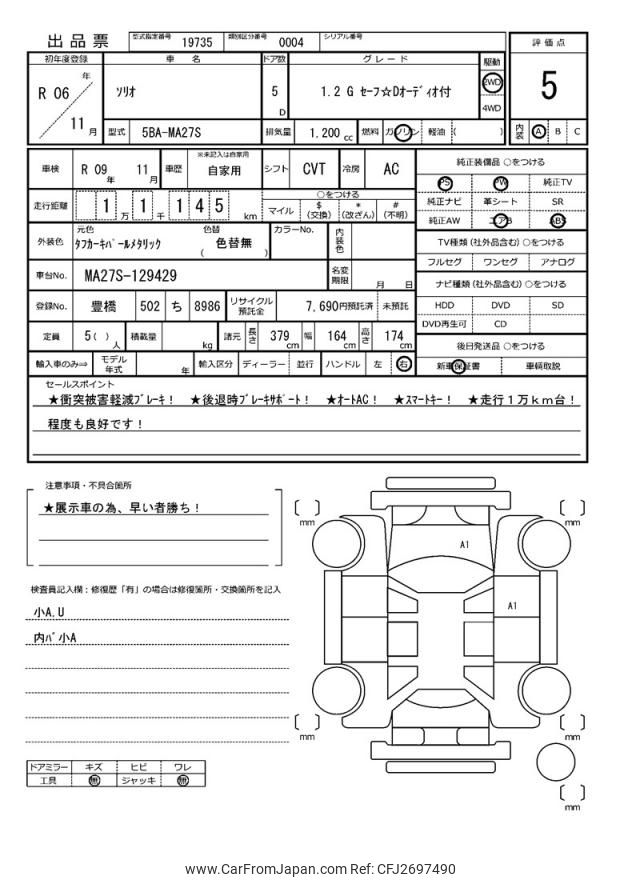 出品票
型式指定番号 19735 類別区分番号 0004 シリアル番号
初年度登録 車名 ドア数 グレード 駆動 評価点
R 06 年 11 月
ソリオ 5 D 1.2 G セーフ☆Dオーディオ付 2WD 4WD
5
型式 5BA-MA27S 排気量 1.200 cc 燃料 ガソリン 軽油 ( ) 内装 A B C
車検 R 09 年 11 月 車歴 ※未記入は自家用 自家用 シフト CVT 冷房 AC
走行距離 1 万 1 千 1 4 5 km
○をつける
マイル $(交換) *(改ざん) #(不明)
外装色 元色 タフカーキパールメタリック 色替 ( 色替無 ) カラーNo. 内装色
車台No. MA27S-129429 名変期限 月 日
登録No. 豊橋 502 ち 8986 リサイクル預託金 7,690円預託済 未預託
定員 5 ( ) 人 積載量 kg 諸元 長さ 379 cm 幅 164 cm 高さ 174 cm
輸入車のみ⇒ モデル年式 年 輸入区分 ディーラー 並行 ハンドル 左 右
純正装備品 ○をつける
PS PW 純正TV
純正ナビ 革シート SR
純正AW エアB ABS
TV種類 (社外品含む) ○をつける
フルセグ ワンセグ アナログ
ナビ種類 (社外品含む) ○をつける
HDD DVD SD
DVD再生可 CD
後日発送品 ○をつける
新車保証書 車輌取説
セールスポイント
★衝突被害軽減ブレーキ! ★後退時ブレーキサポート! ★オートAC! ★スマートキー! ★走行1万km台!
程度も良好です!
注意事項・不具合箇所
★展示車の為、早い者勝ち!
検査員記入欄:修復歴「有」の場合は修復箇所・交換箇所を記入
小A.U
内バ小A
ドアミラー キズ ヒビ ワレ
工具 無 ジャッキ 無
[ ] mm
[ ] mm
A1
A1
[ ] mm
[ ] mm
[ ] mm
www.CarFromJapan.com Ref: CFJ2697490